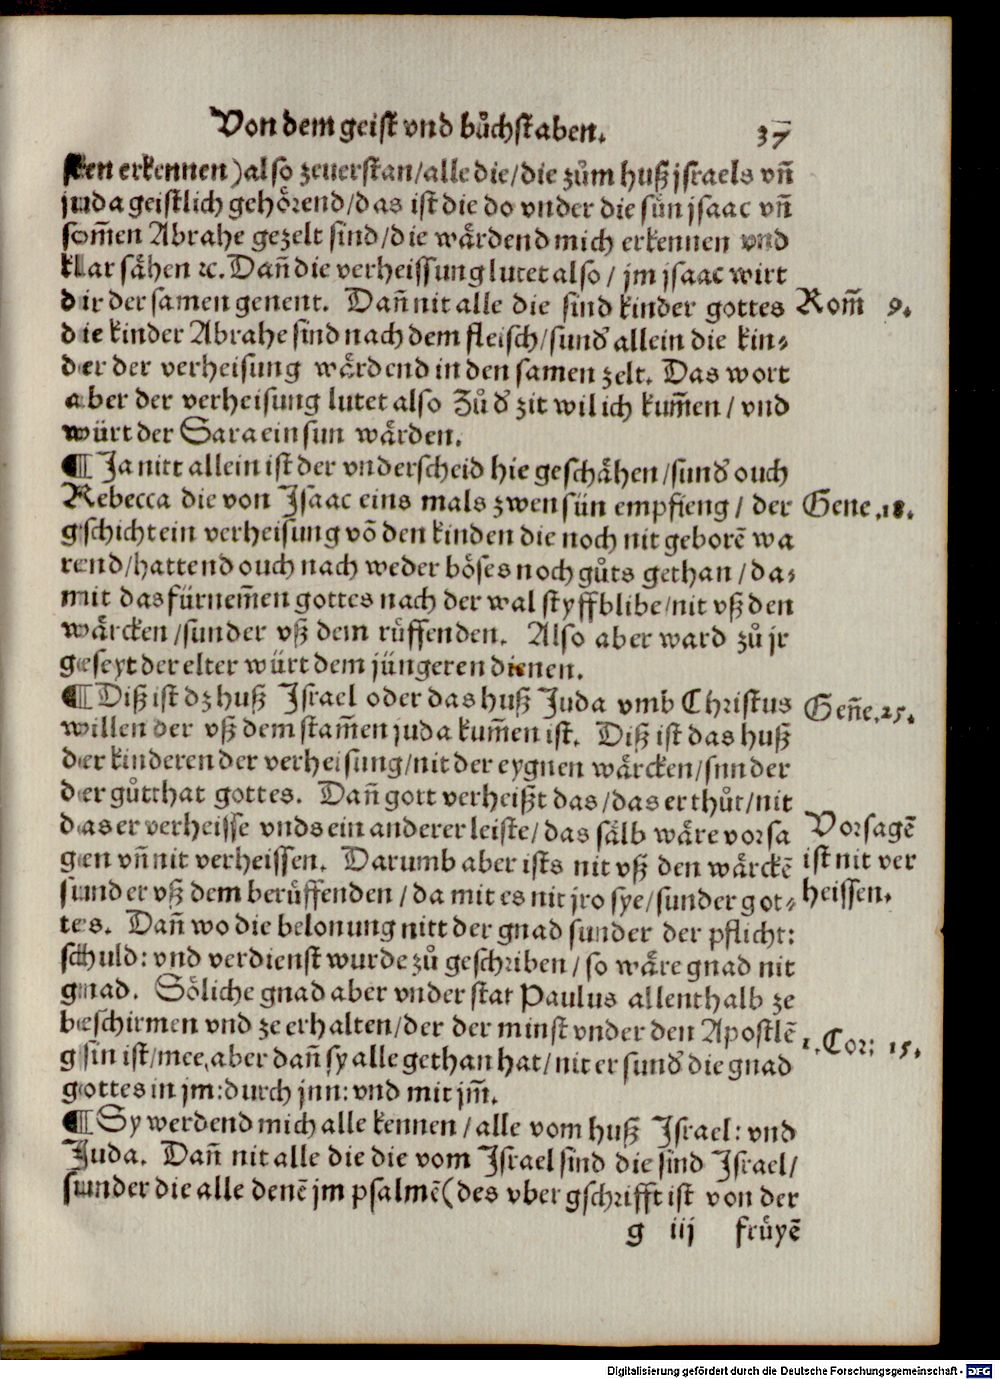 Von dem geist vnd bůchstaben. 37
sten erkennen) also zeuerstan/alle die/die zům huß jsraels vñ
juda geistlich gehörend/das ist die do vnder die sün jsaac vñ
som̄en Abrahe gezelt sind/die wärdend mich erkennen vnd
klar sähen ꝛc. Dañ die verheissung lutet also/ jm jsaac wirt
dir der samen genent. Dañ nit alle die sind kinder gottes
Rom̄ 9.
die kinder Abrahe sind nach dem fleisch/sund' allein die kin-
der der verheisung wärdend in den samen zelt. Das wort
aber der verheisung lutet also Zů d' zit wil ich kum̄en/ vnd
würt der Sara ein sun wärden.
¶ Ja nitt allein ist der vnderscheid hie geschähen/sund' ouch
Rebecca die von Jsaac eins mals zwen sün empfieng/ der
Gene.18.
gschicht ein verheisung vō den kinden die noch nit geborē wa
rend/hattend ouch nach weder böses noch gůts gethan/da-
mit das fürnem̄en gottes nach der wal styff blibe/nit vß den
wärcken/sunder vß dem rüffenden. Also aber ward zů jr
geseyt der elter würt dem jüngeren dienen.
¶ Diß ist dz huß Jsrael oder das huß Juda vmb Christus
Geñe.25.
willen der vß dem stam̄en juda kum̄en ist. Diß ist das huß
der kinderen der verheisung/nit der eygnen wärcken/sunder
der gůtthat gottes. Dañ gott verheißt das/das er thůt/nit
das er verheisse vnd sein anderer leiste/das sälb wäre vorsa
Vorsagē
gen vñ nit verheissen. Darumb aber ists nit vß den wärckē
ist nit ver
sunder vß dem berüffenden/da mit es nit jro sye/sunder got-
heissen.
tes. Dañ wo die belonung nitt der gnad sunder der pflicht:
schuld: vnd verdienst wurde zů geschriben/ so wäre gnad nit
gnad. Söliche gnad aber vnder stat Paulus allenthalb ze
beschirmen vnd ze erhalten/der der minst vnder den Apostlē
1. Cor: 15.
gsin ist/mee, aber dañ sy alle gethan hat/nit er sund' die gnad
gottes in jm: durch jnn: vnd mit jm̄.
¶ Sy werdend mich alle kennen/alle vom huß Jsrael: vnd
Juda. Dañ nit alle die die vom Jsrael sind die sind Jsrael/
sunder die alle denē jm psalmē (des vbergschrifft ist von der
g iij früyē
Digitalisierung gefördert durch die Deutsche Forschungsgemeinschaft - DFG